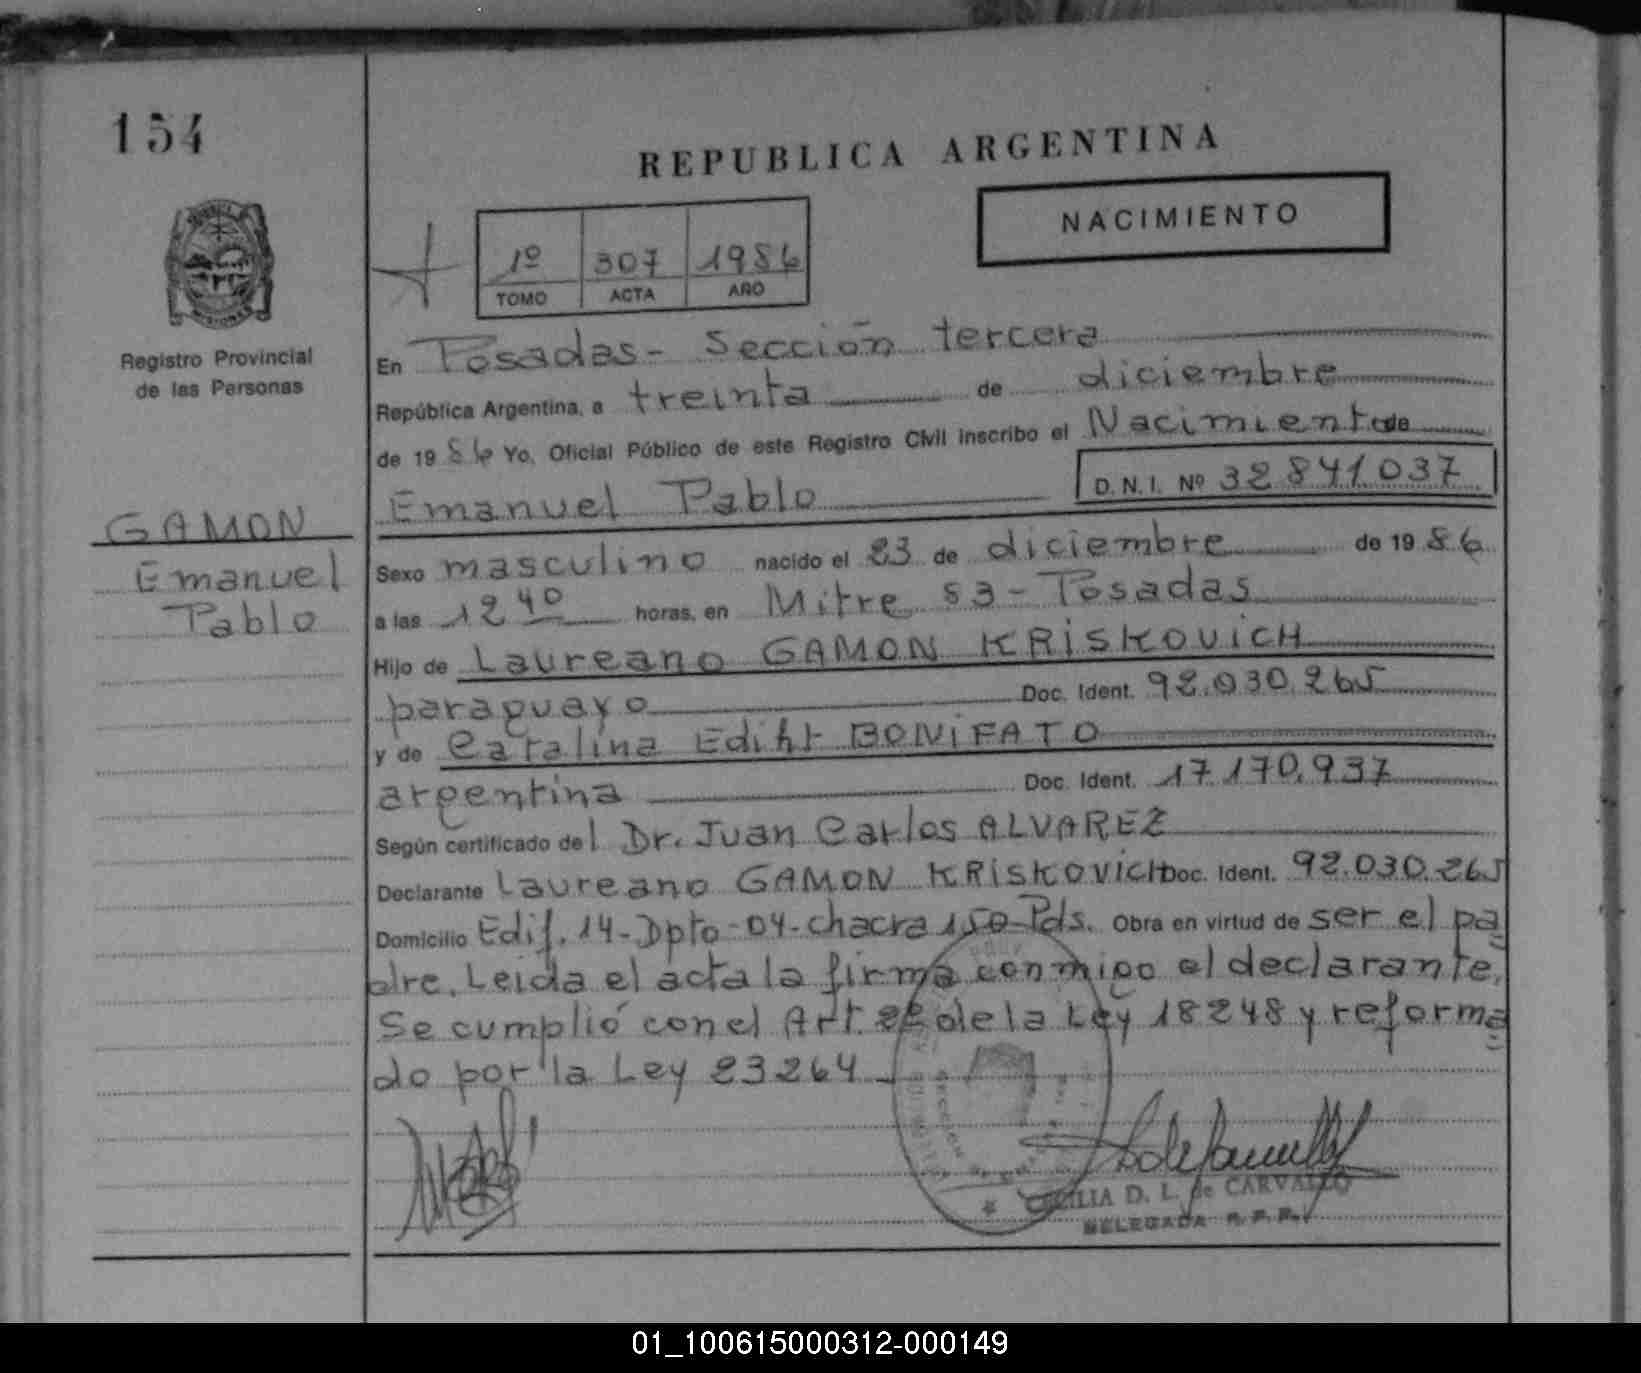 154
REPUBLICA ARGENTINA
NACIMIENTO
1º 307 1986
TOMO ACTA AÑO
Registro Provincial
de las Personas
GAMON
Emanuel
Pablo
En Posadas - Sección tercera
República Argentina, a treinta de diciembre
de 1986 Yo, Oficial Público de este Registro Civil inscribo el Nacimiento de
Emanuel Pablo D.N.I. Nº 32.841.037
Sexo masculino nacido el 23 de diciembre de 1986
a las 12 40 horas, en Mitre 53 - Posadas
Hijo de Laureano GAMON KRISKOVICH
paraguayo Doc. Ident. 92.030.265
y de Catalina Ediht BONIFATO
argentina Doc. Ident. 17.170.937
Según certificado del Dr. Juan Carlos ALVAREZ
Declarante Laureano GAMON KRISKOVICH Doc. Ident. 92.030.265
Domicilio Edif. 14 - Dpto - 04 - chacra 150 - Pds. Obra en virtud de ser el pa
dre. Leida el acta la firma conmigo el declarante.
Se cumplió con el Art. 2º de la Ley 18248 y reforma
do por la Ley 23264
CECILIA D. L. de CARVALLO
DELEGADA R. P. P.
01_100615000312-000149